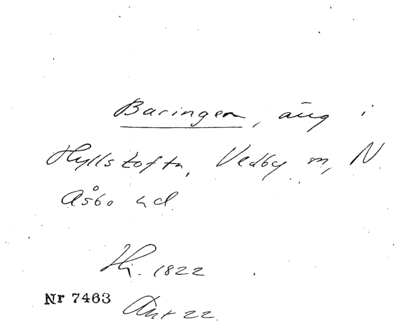 Baringen, äng i
Hyllstofta, Vedby sn, N.
Åsbo hd.
Hi. 1822
Nr 7463
Akt 22